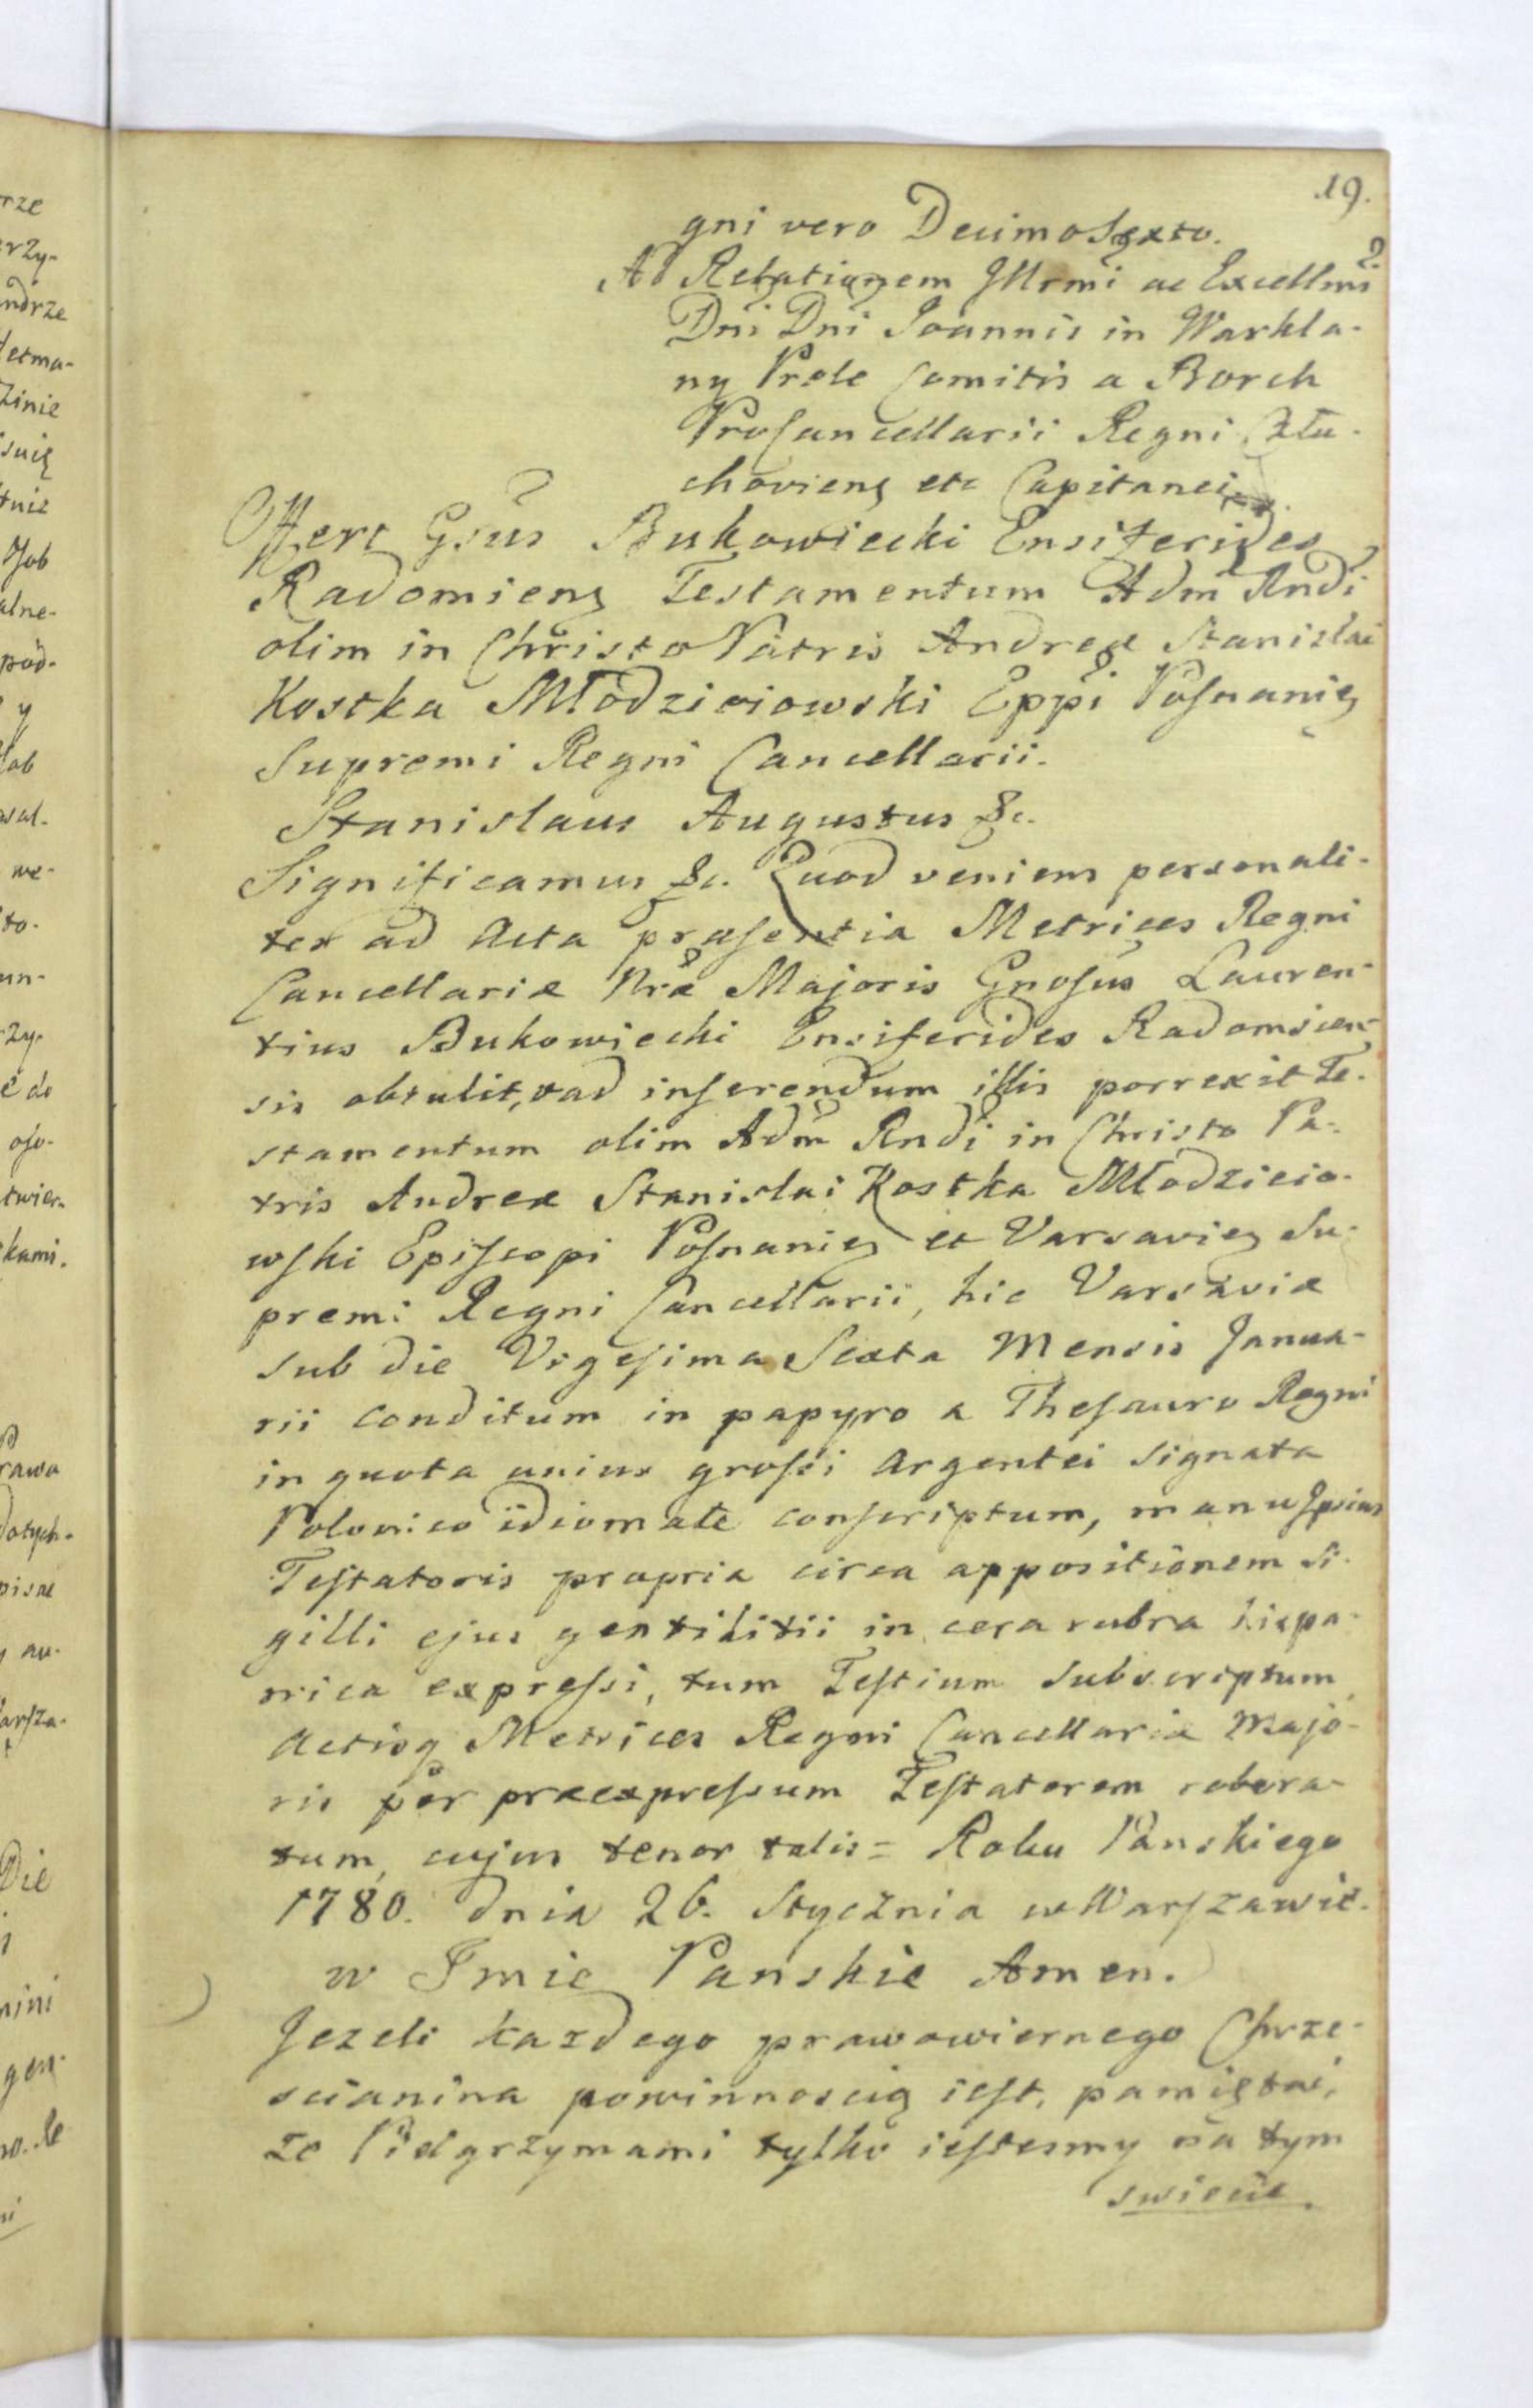 19.
gni vero Decimo Sexto.
Ad Relationem Illrmi ac Excellmi
Dni Dni Joannis in Warkla-
ny Prele Comitis a Borch
ProCancellarii Regni Człu-
choviens etc Capitanei
Offert Gsus Bukowiecki Ensiferides
Radomiens Testamentum Adm Rndi
olim in Christo Patris Andreæ Stanislai
Kostka Młodzieiowski Eppi Posnanies
Supremi Regni Cancellarii.
Stanislaus Augustus &c.
Significamus &c. Quod veniens personali-
ter ad Acta præsentia Metrices Regni
Cancellariæ Nræ Majoris Gnosus Lauren-
tius Bukowiecki Ensiferides Radomien-
sis obtulit, et ad inserendum illis porrexit Te-
stamentum olim Adm Rndi in Christo Pa-
tris Andreæ Stanislai Kostka Młodzieio-
wski Episcopi Posnanies et Varsavies Su-
premi Regni Cancellarii, hic Varsaviæ
sub die Vigesima Sexta Mensis Janua-
rii conditum in papyro a Thesauro Regni
in quota unius grossi Argentei signata
Polonico idiomate conscriptum, manu Ipsius
Testatoris propria circa appositionem Si-
gilli ejus gentilitii in cera rubra hispa-
nica expressi, tum Testium subscriptum,
Actisq Metrices Regni Cancellariæ Majo-
ris per præexpressum Testatorem robora-
tum, cujus tenor talis = Roku Panskiego
1780. dnia 26. Stycznia w Warszawie.
w Imie Panskie Amen.
Jezeli kazdego prawowiernego Chrze-
scianina powinnoscią iest, pamiętać,
ze Pielgrzymami tylko iestesmy na tym
swiecie.